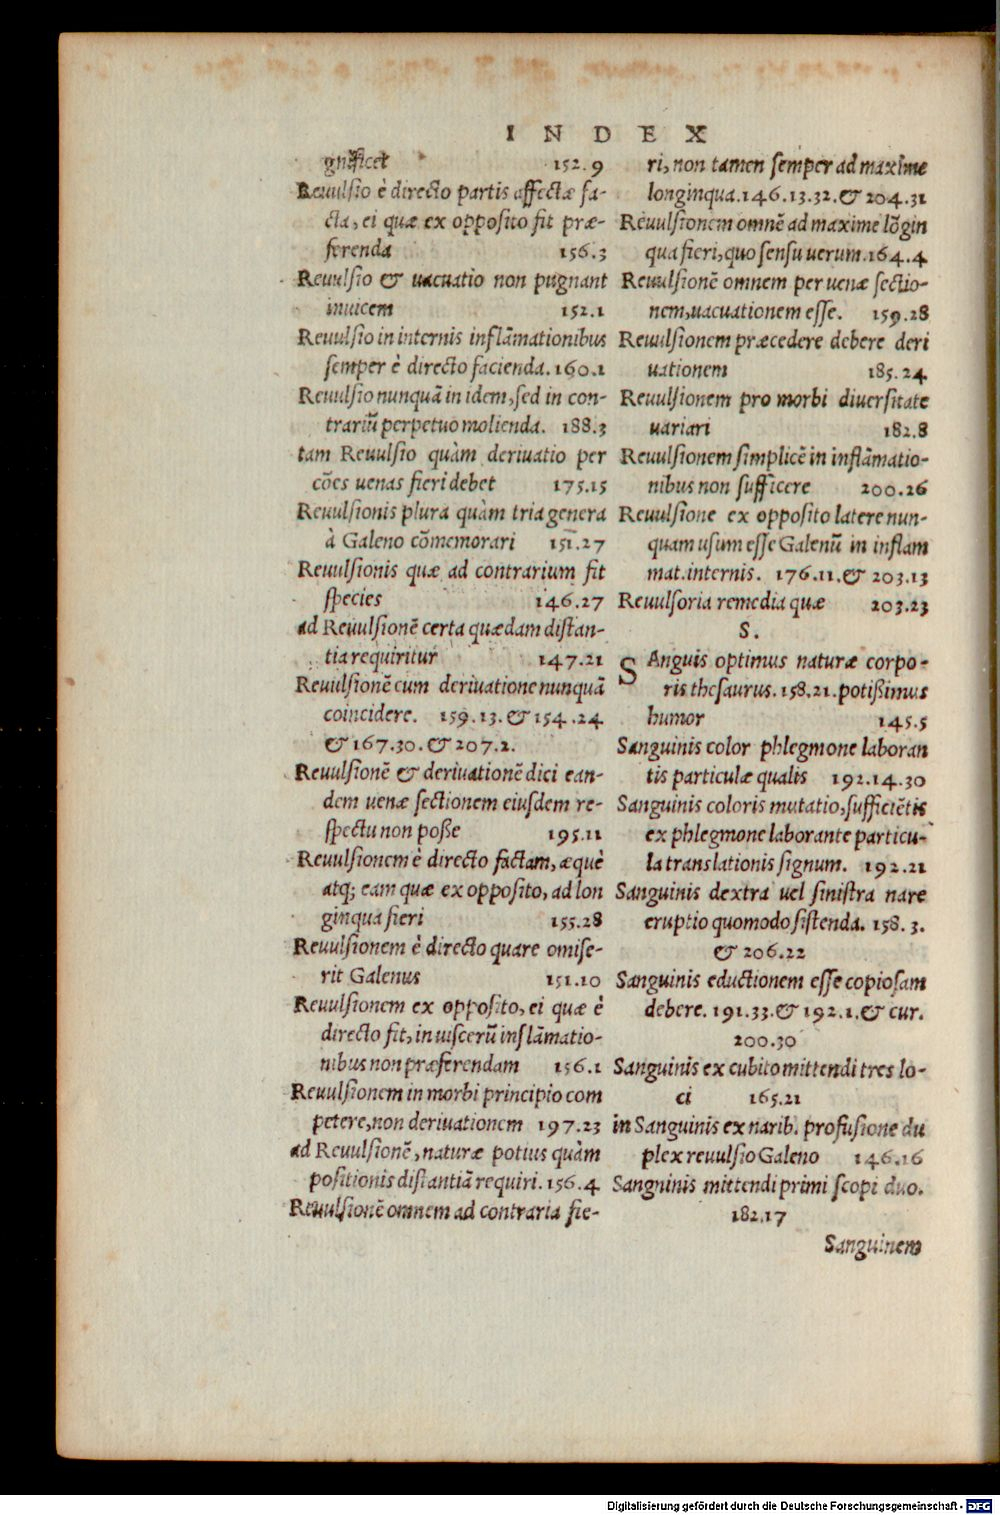 INDEX
gnificet 152.9
Reuulsio è directo partis affectæ fa-
cta, ei quæ ex opposito fit præ-
ferenda 156.3
Reuulsio & uacuatio non pugnant
inuicem 152.1
Reuulsio in internis inflāmationibus
semper è directo facienda. 160.1
Reuulsio nunquā in idem, sed in con-
trariū perpetuo molienda. 188.3
tam Reuulsio quàm deriuatio per
cōes uenas fieri debet 175.15
Reuulsionis plura quàm tria genera
à Galeno cōmemorari 151.27
Reuulsionis quæ ad contrarium fit
species 146.27
ad Reuulsionē certa quædam distan-
tia requiritur 147.21
Reuulsionē cum deriuatione nunquā
coincidere. 159.13. & 154.24
& 167.30. & 207.2.
Reuulsionē & deriuationē dici ean-
dem uenæ sectionem eiusdem re-
spectu non posse 195.11
Reuulsionem è directo factam, æquè
atq; eam quæ ex opposito, ad lon
ginqua fieri 155.28
Reuulsionem è directo quare omise-
rit Galenus 151.10
Reuulsionem ex opposito, ei quæ è
directo fit, in uiscerū inflāmatio-
nibus non præferendam 156.1
Reuulsionem in morbi principio com
petere, non deriuationem 197.23
ad Reuulsionē, naturæ potius quàm
positionis distantiā requiri. 156.4
Reuulsionē omnem ad contraria fie-
ri, non tamen semper ad maxime
longinqua. 146.13.32. & 204.31
Reuulsionem omnē ad maxime lōgin
qua fieri, quo sensu uerum. 164.4
Reuulsionē omnem per uenæ sectio-
nem, uacuationem esse. 159.28
Reuulsionem præcedere debere deri
uationem 185.24
Reuulsionem pro morbi diuersitate
uariari 182.8
Reuulsionem simplicē in inflāmatio-
nibus non sufficere 200.26
Reuulsione ex opposito latere nun-
quam usum esse Galenū in inflam
mat. internis. 176.11. & 203.13
Reuulsoria remedia quæ 203.23
S.
SAnguis optimus naturæ corpo-
ris thesaurus. 158.21. potißimus
humor 145.5
Sanguinis color phlegmone laboran
tis particulæ qualis 192.14.30
Sanguinis coloris mutatio, sufficiētis
ex phlegmone laborante particu-
la translationis signum. 192.21
Sanguinis dextra uel sinistra nare
eruptio quomodo sistenda. 158.3.
& 206.22
Sanguinis eductionem esse copiosam
debere. 191.33. & 192.1. & cur.
200.30
Sanguinis ex cubito mittendi tres lo-
ci 165.21
in Sanguinis ex narib. profusione du
plex reuulsio Galeno 146.16
Sanguinis mittendi primi scopi duo.
182.17
Sanguinem
Digitalisierung gefördert durch die Deutsche Forschungsgemeinschaft - DFG